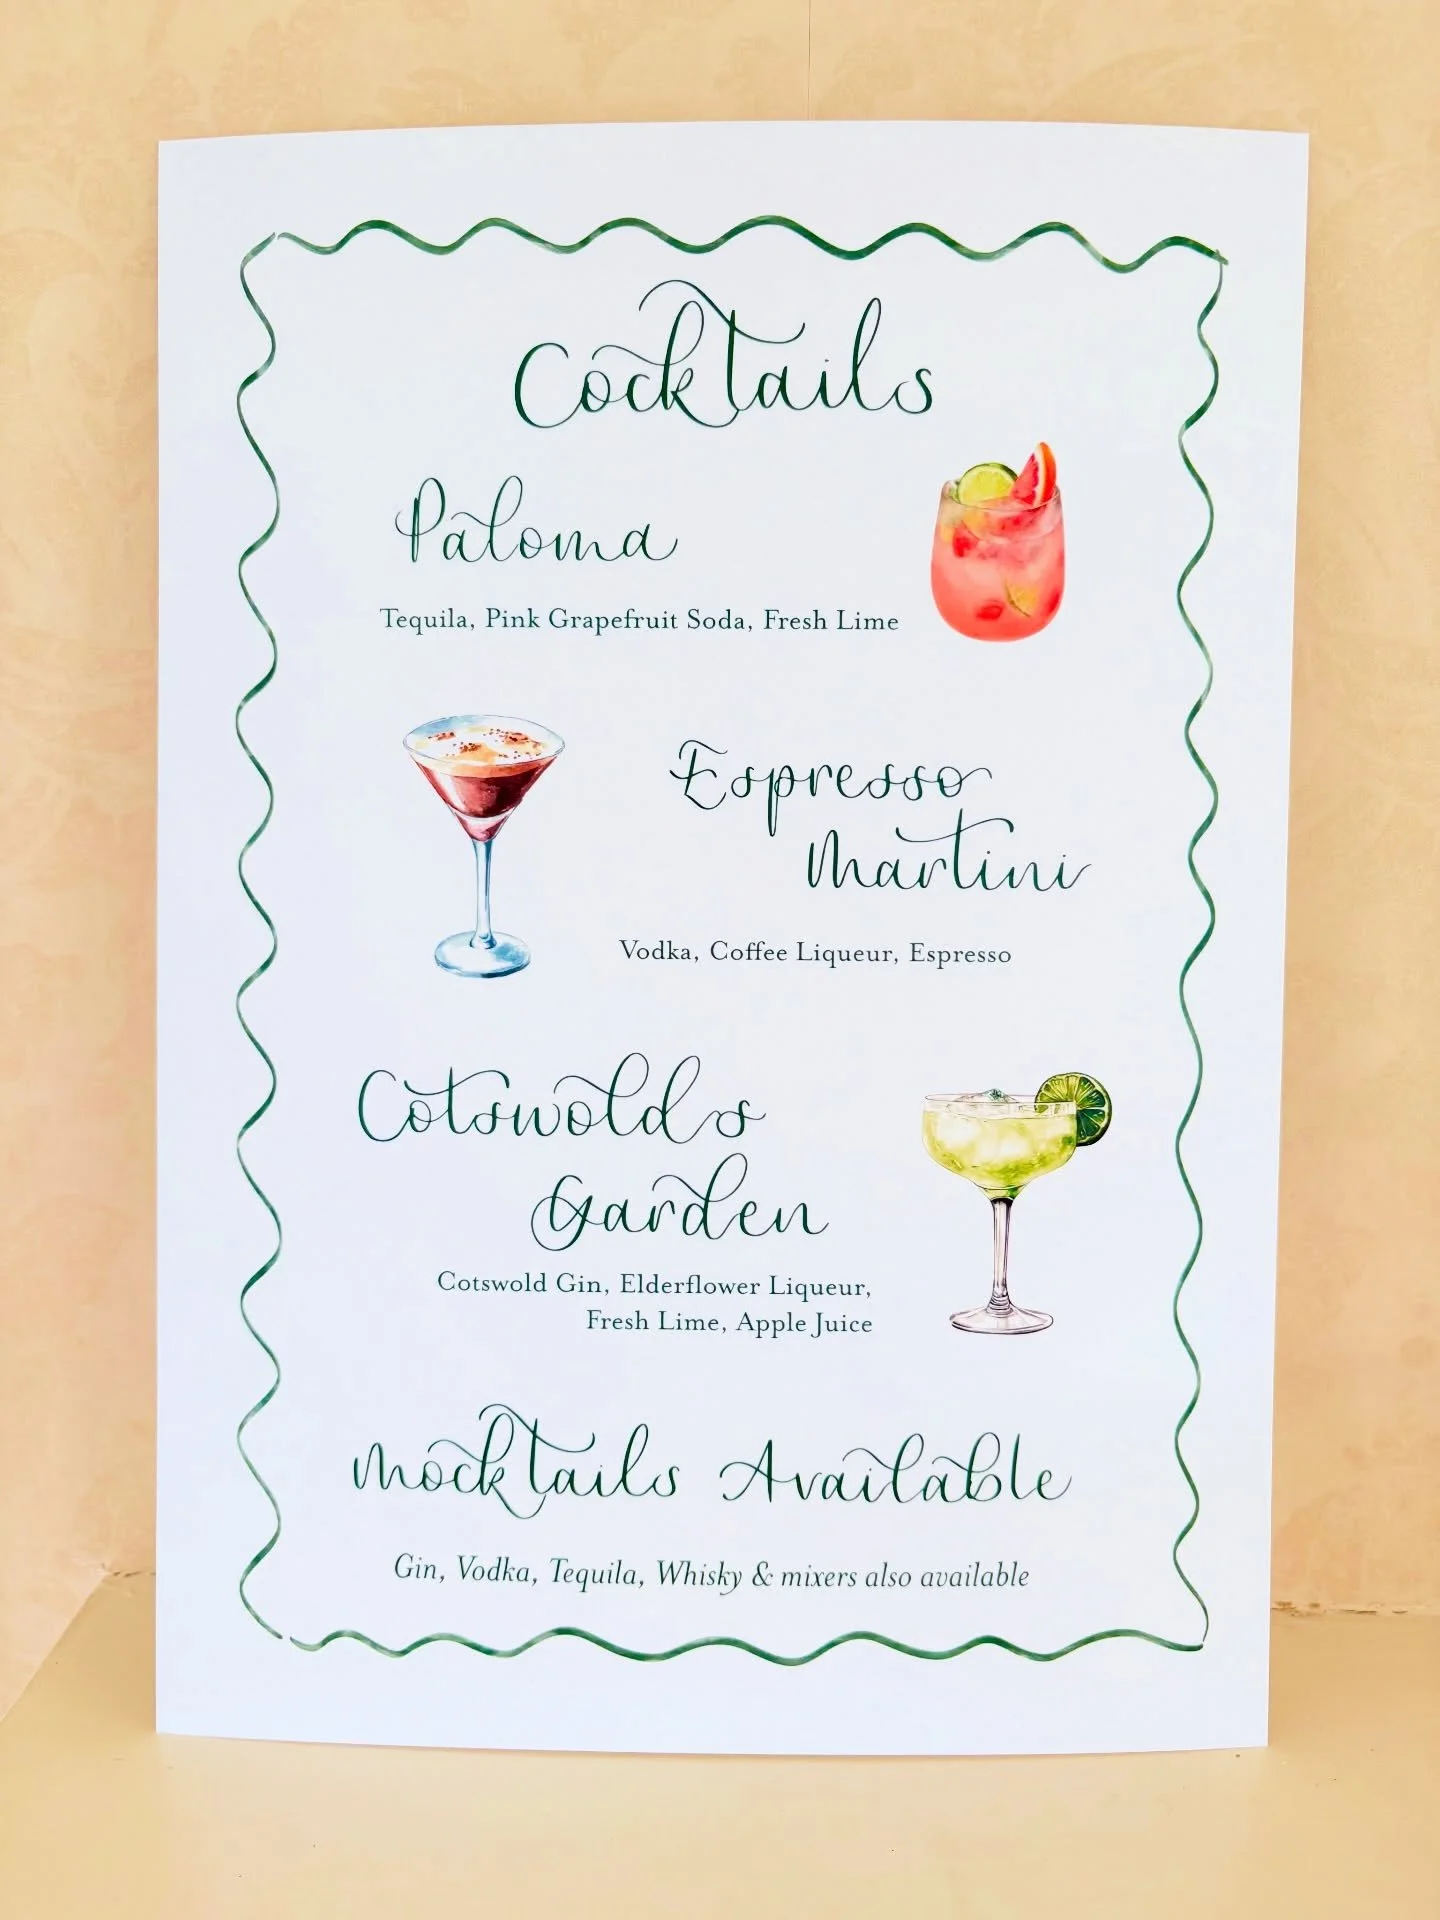 Cocktails
Paloma
Tequila, Pink Grapefruit Soda, Fresh Lime
Espresso
Martini
Vodka, Coffee Liqueur, Espresso
Cotswolds
Garden
Cotswold Gin, Elderflower Liqueur,
Fresh Lime, Apple Juice
Mocktails Available
Gin, Vodka, Tequila, Whisky & mixers also available